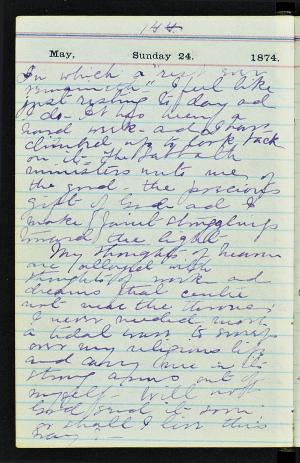 144
May, Sunday 24. 1874.
In which a "rest
remaineth" I feel like
just resting to day ad
I do - It has been a
hard week - ad I have
climbed up to look back
on it - The Sabbath
ministers unto me, of
the good - the precious
gift of God ad I
make faint struggling
toward the light -
My thoughts of heaven
are alloyed with
thoughts of work ad
dreams that centre
not near the throne;
I never needed more
a tidal wave to sweep
over my religious life
and carry me in its
strong arms out of
myself - Will not
God send it soon
or shall I live this
way -